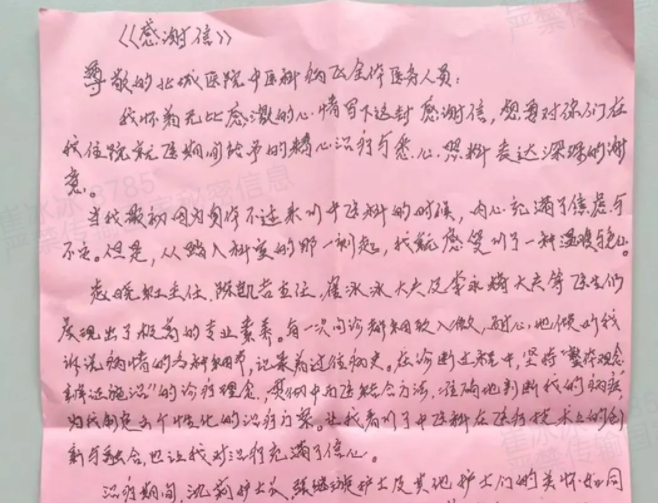 《感谢信》
尊敬的北城医院中医科病区全体医务人员：
我怀着无比感激的心情写下这封感谢信，想要对你们在
我住院就医期间给予的精心治疗与悉心照料表达深深的谢
意。
当我最初因为身体不适来到中医科的时候，内心充满了焦虑与
不安。但是，从踏入科室的那一刻起，我就感受到了一种温暖与
主任、陈凯吉主任、崔冰冰大夫及李永 大夫等医生们
展现出了极高的专业素养。每一次问诊都细致入微，耐心地倾听我
诉说病情的各种细节，记录着过往病史。在诊断过程中，坚持“整体观念
辨证施治”的诊疗理念，贯彻中西医结合方法，准确地判断我的病
为我制定了个性化的治疗方案。让我看到了中医科在医疗技术上的创
新与融合，也让我对治疗充满了信心。
治疗期间，沈 护士长、张 护士及其他护士们的关怀如同